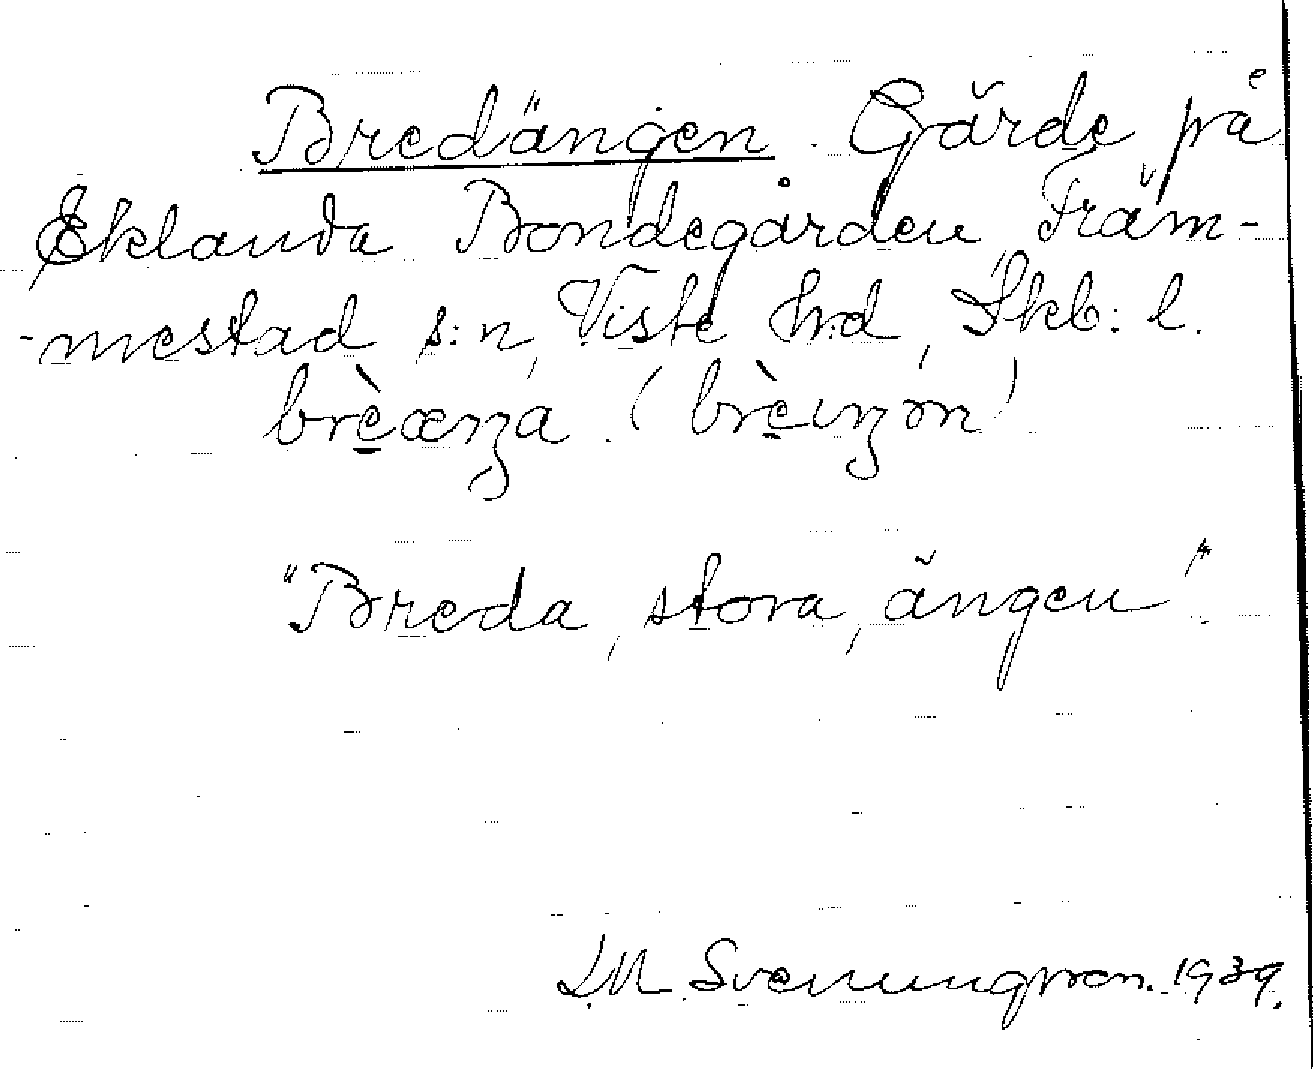 Bredängen. Gärde på
Eklanda Bondegården, Främ-
-mestad s:n, Viste hrd, Skb: l.
"Breda, stora, ängen".
LM Svenungsson. 1939.